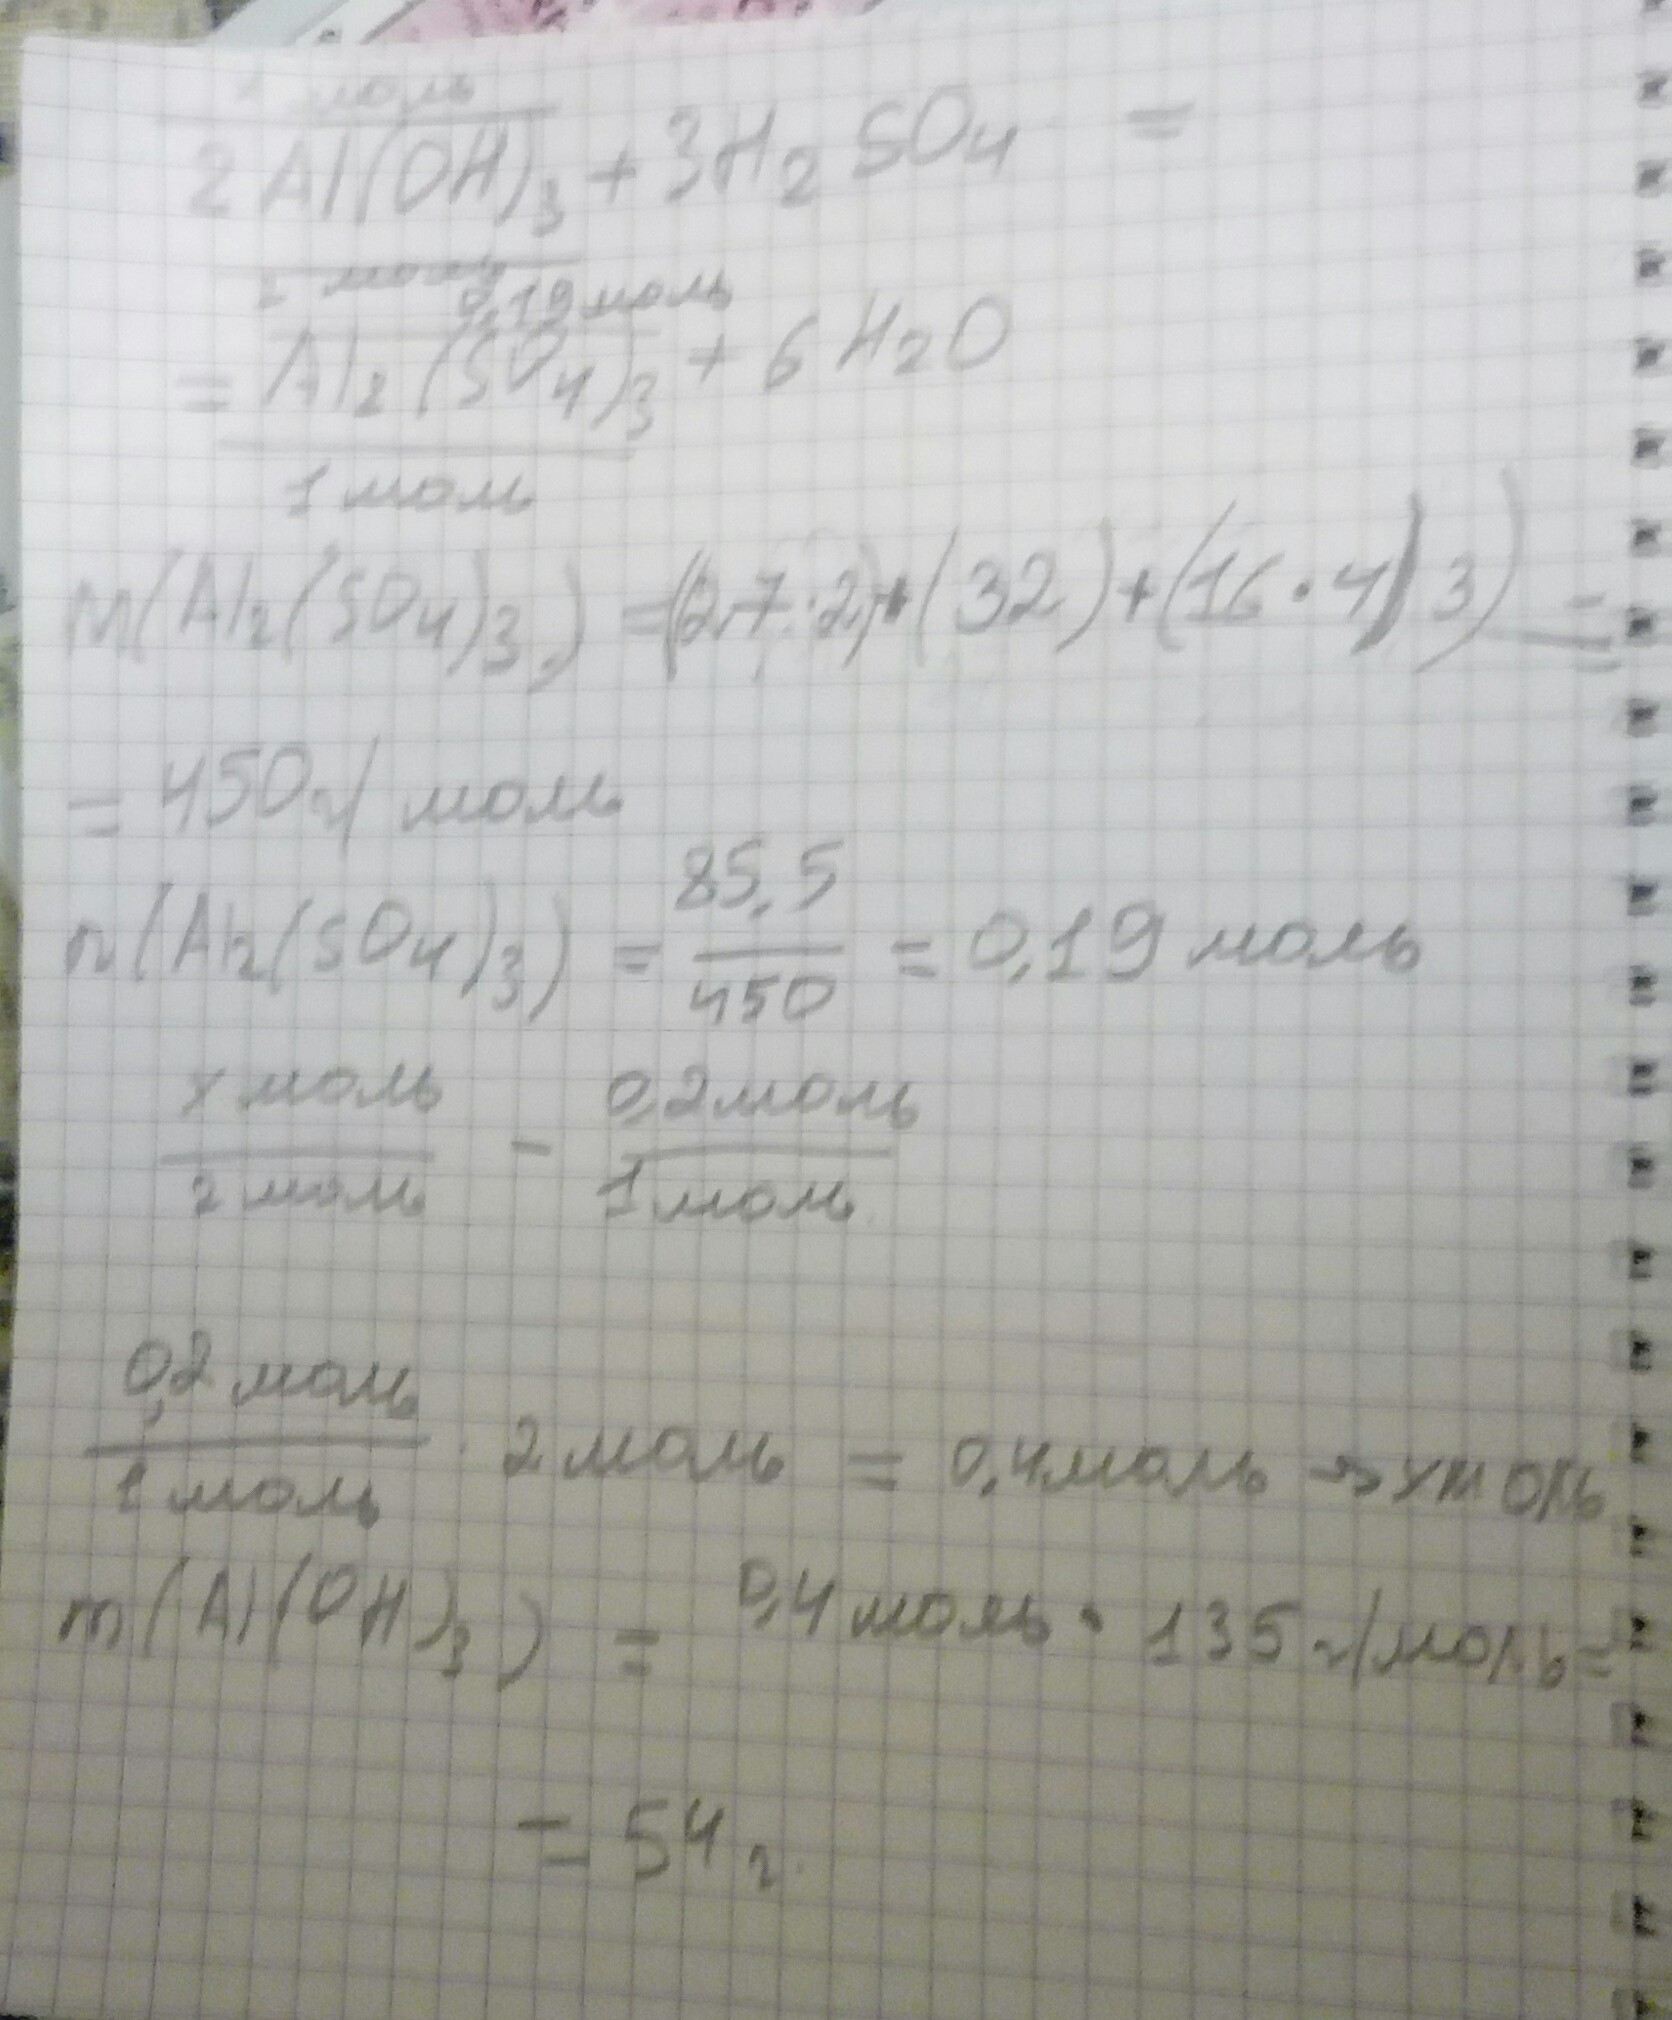 моль
2Al(OH)₃ + 3H₂SO₄ =
2 моль 0,19моль
= Al₂(SO₄)₃ + 6H₂O
1 моль
M(Al₂(SO₄)₃) = (27·2)+(32)+(16·4)3) =
= 450г/моль
n(Al₂(SO₄)₃) = 85,5/450 = 0,19 моль
x моль/2 моль - 0,2моль/1моль
0,2 моль/1 моль · 2 моль = 0,4моль → x моль
m(Al(OH)₃) = 0,4 моль · 135 г/моль =
= 54 г.